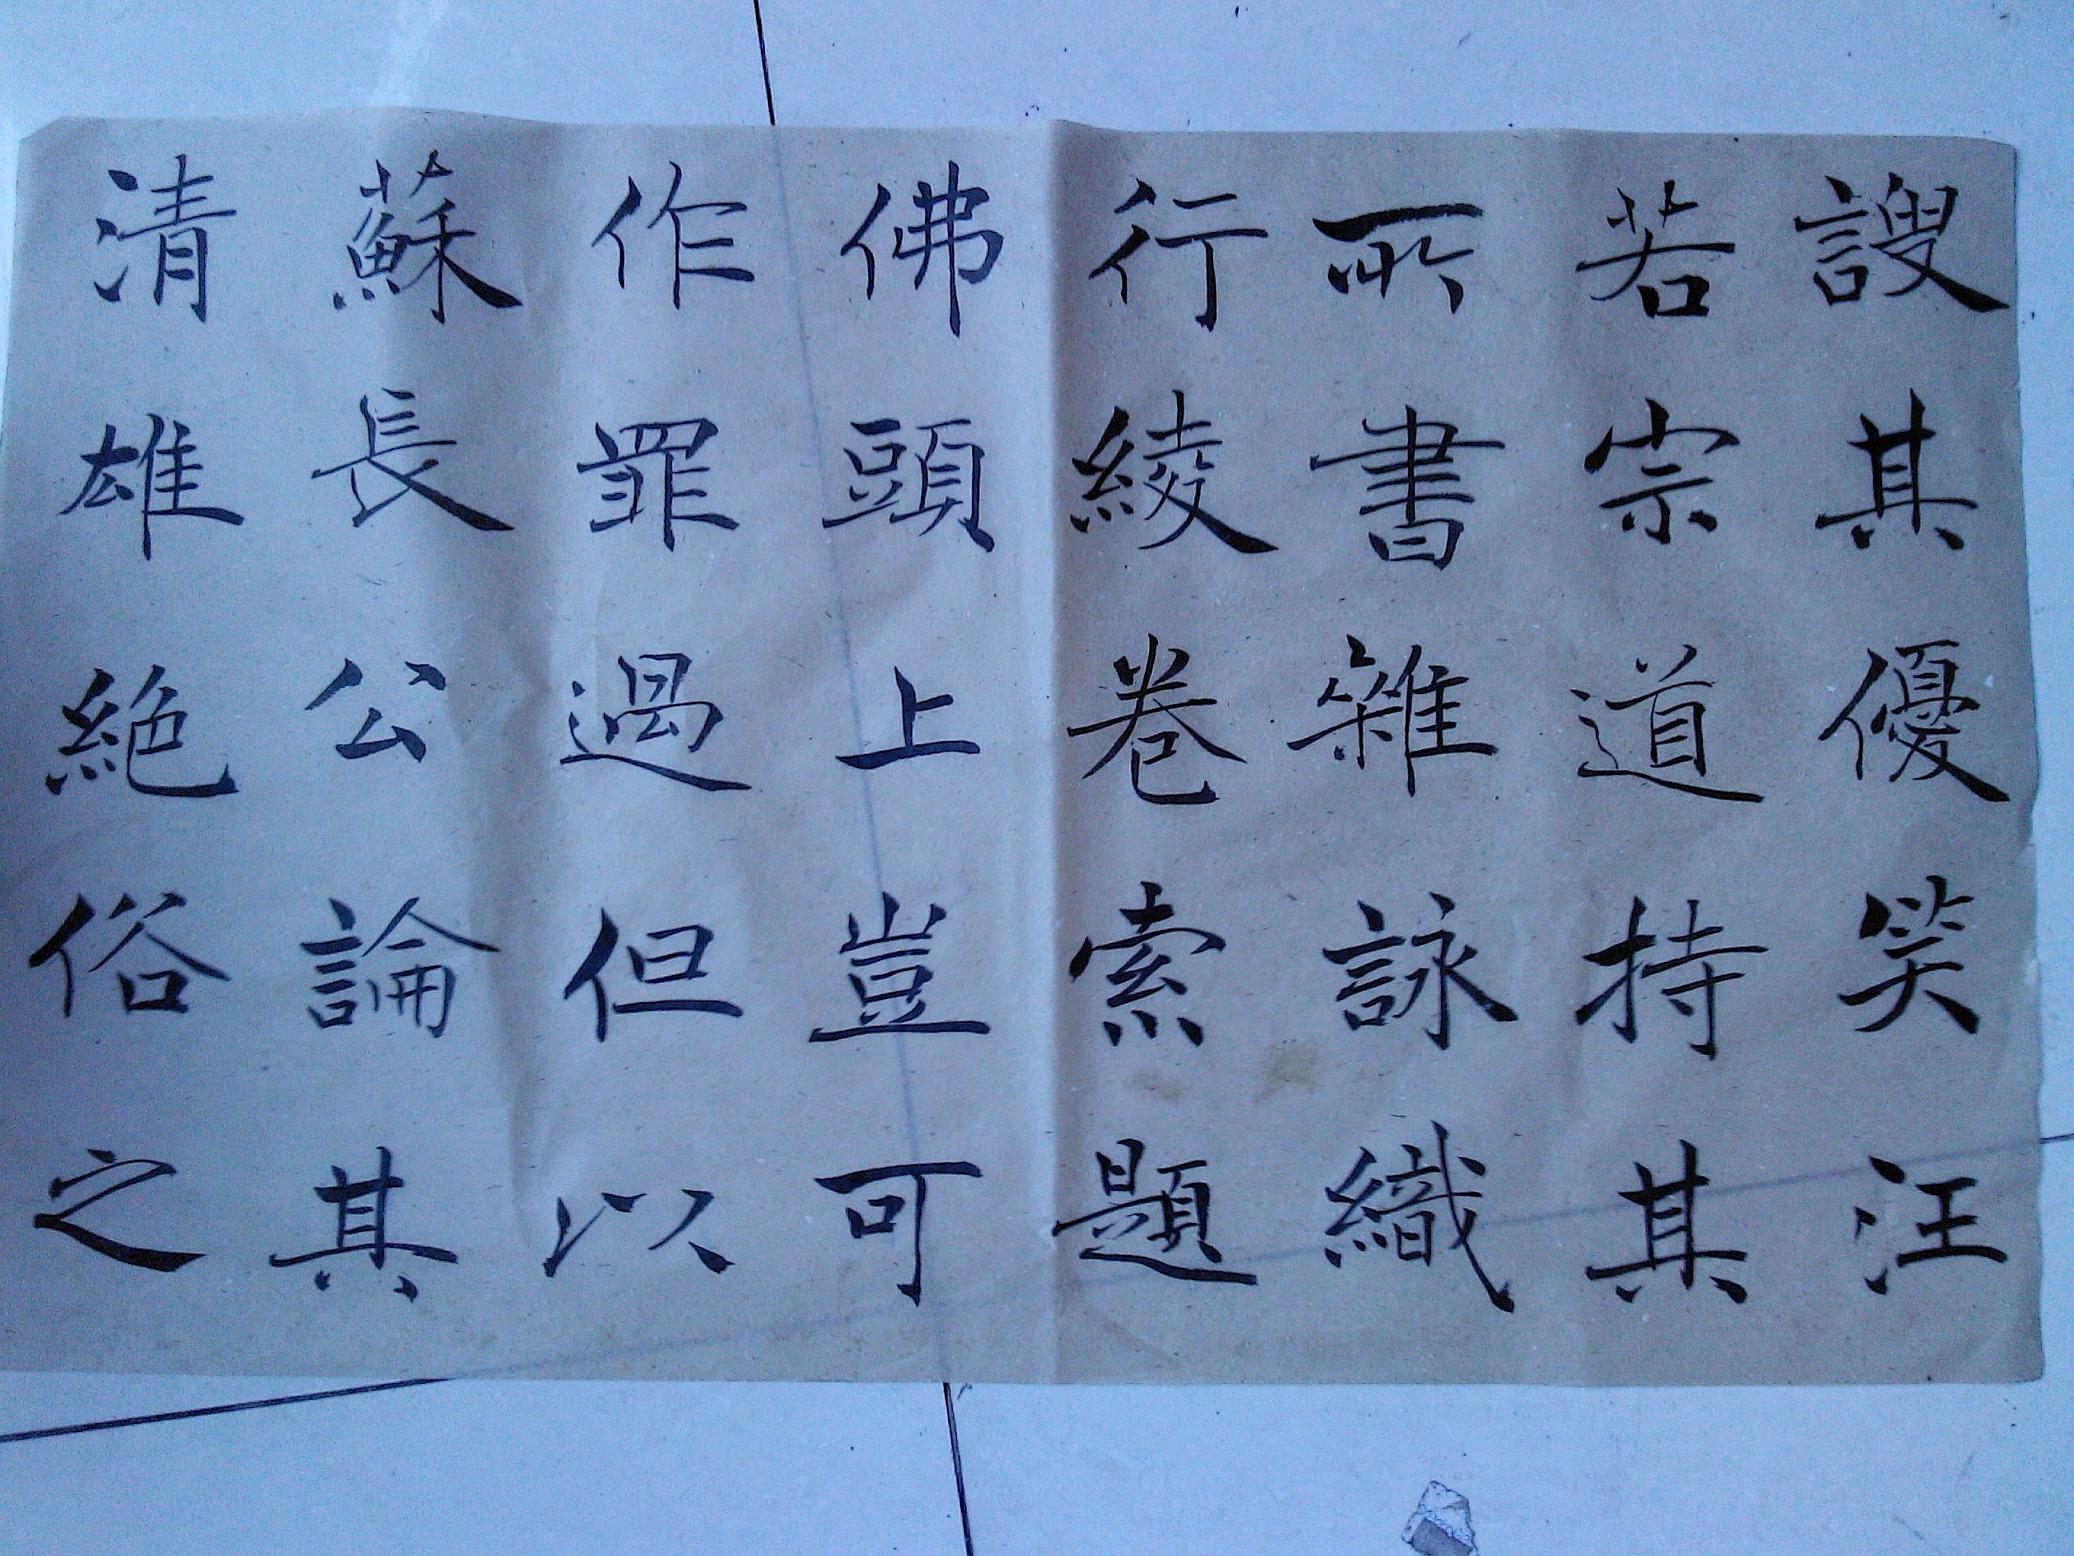 謏其優笑汪
若宗道持其
所書雜詠織
行綾卷索題
佛頭上豈可
作罪過但以
蘇長公論其
清雄絕俗之